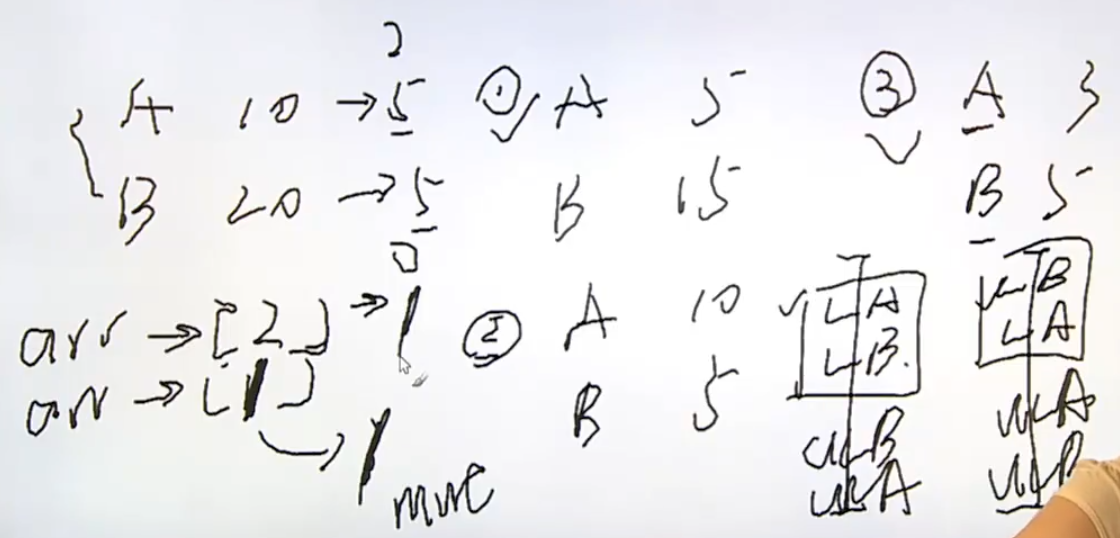 2
A 10 → 5
B 20 → 5
0
arr → [2] → 1
arr → [1] → 1
① A 5
B 15
② A 10
B 5
③ A 3
B 5
L A
L B
UL B
UL A
L B
L A
UL A
UL B